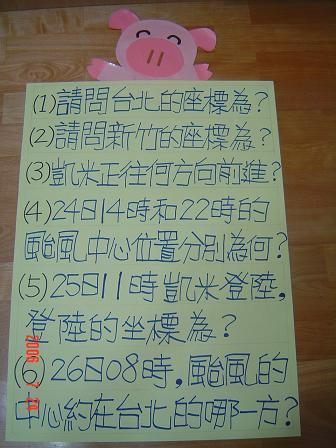 (1)請問台北的座標為?
(2)請問新竹的座標為?
(3)凱米正往何方向前進?
(4)24日14時和22時的
颱風中心位置分別為何?
(5)25日11時凱米登陸,
登陸的坐標為?
(6)26日08時,颱風的
中心約在台北的哪一方?
2006 7 24